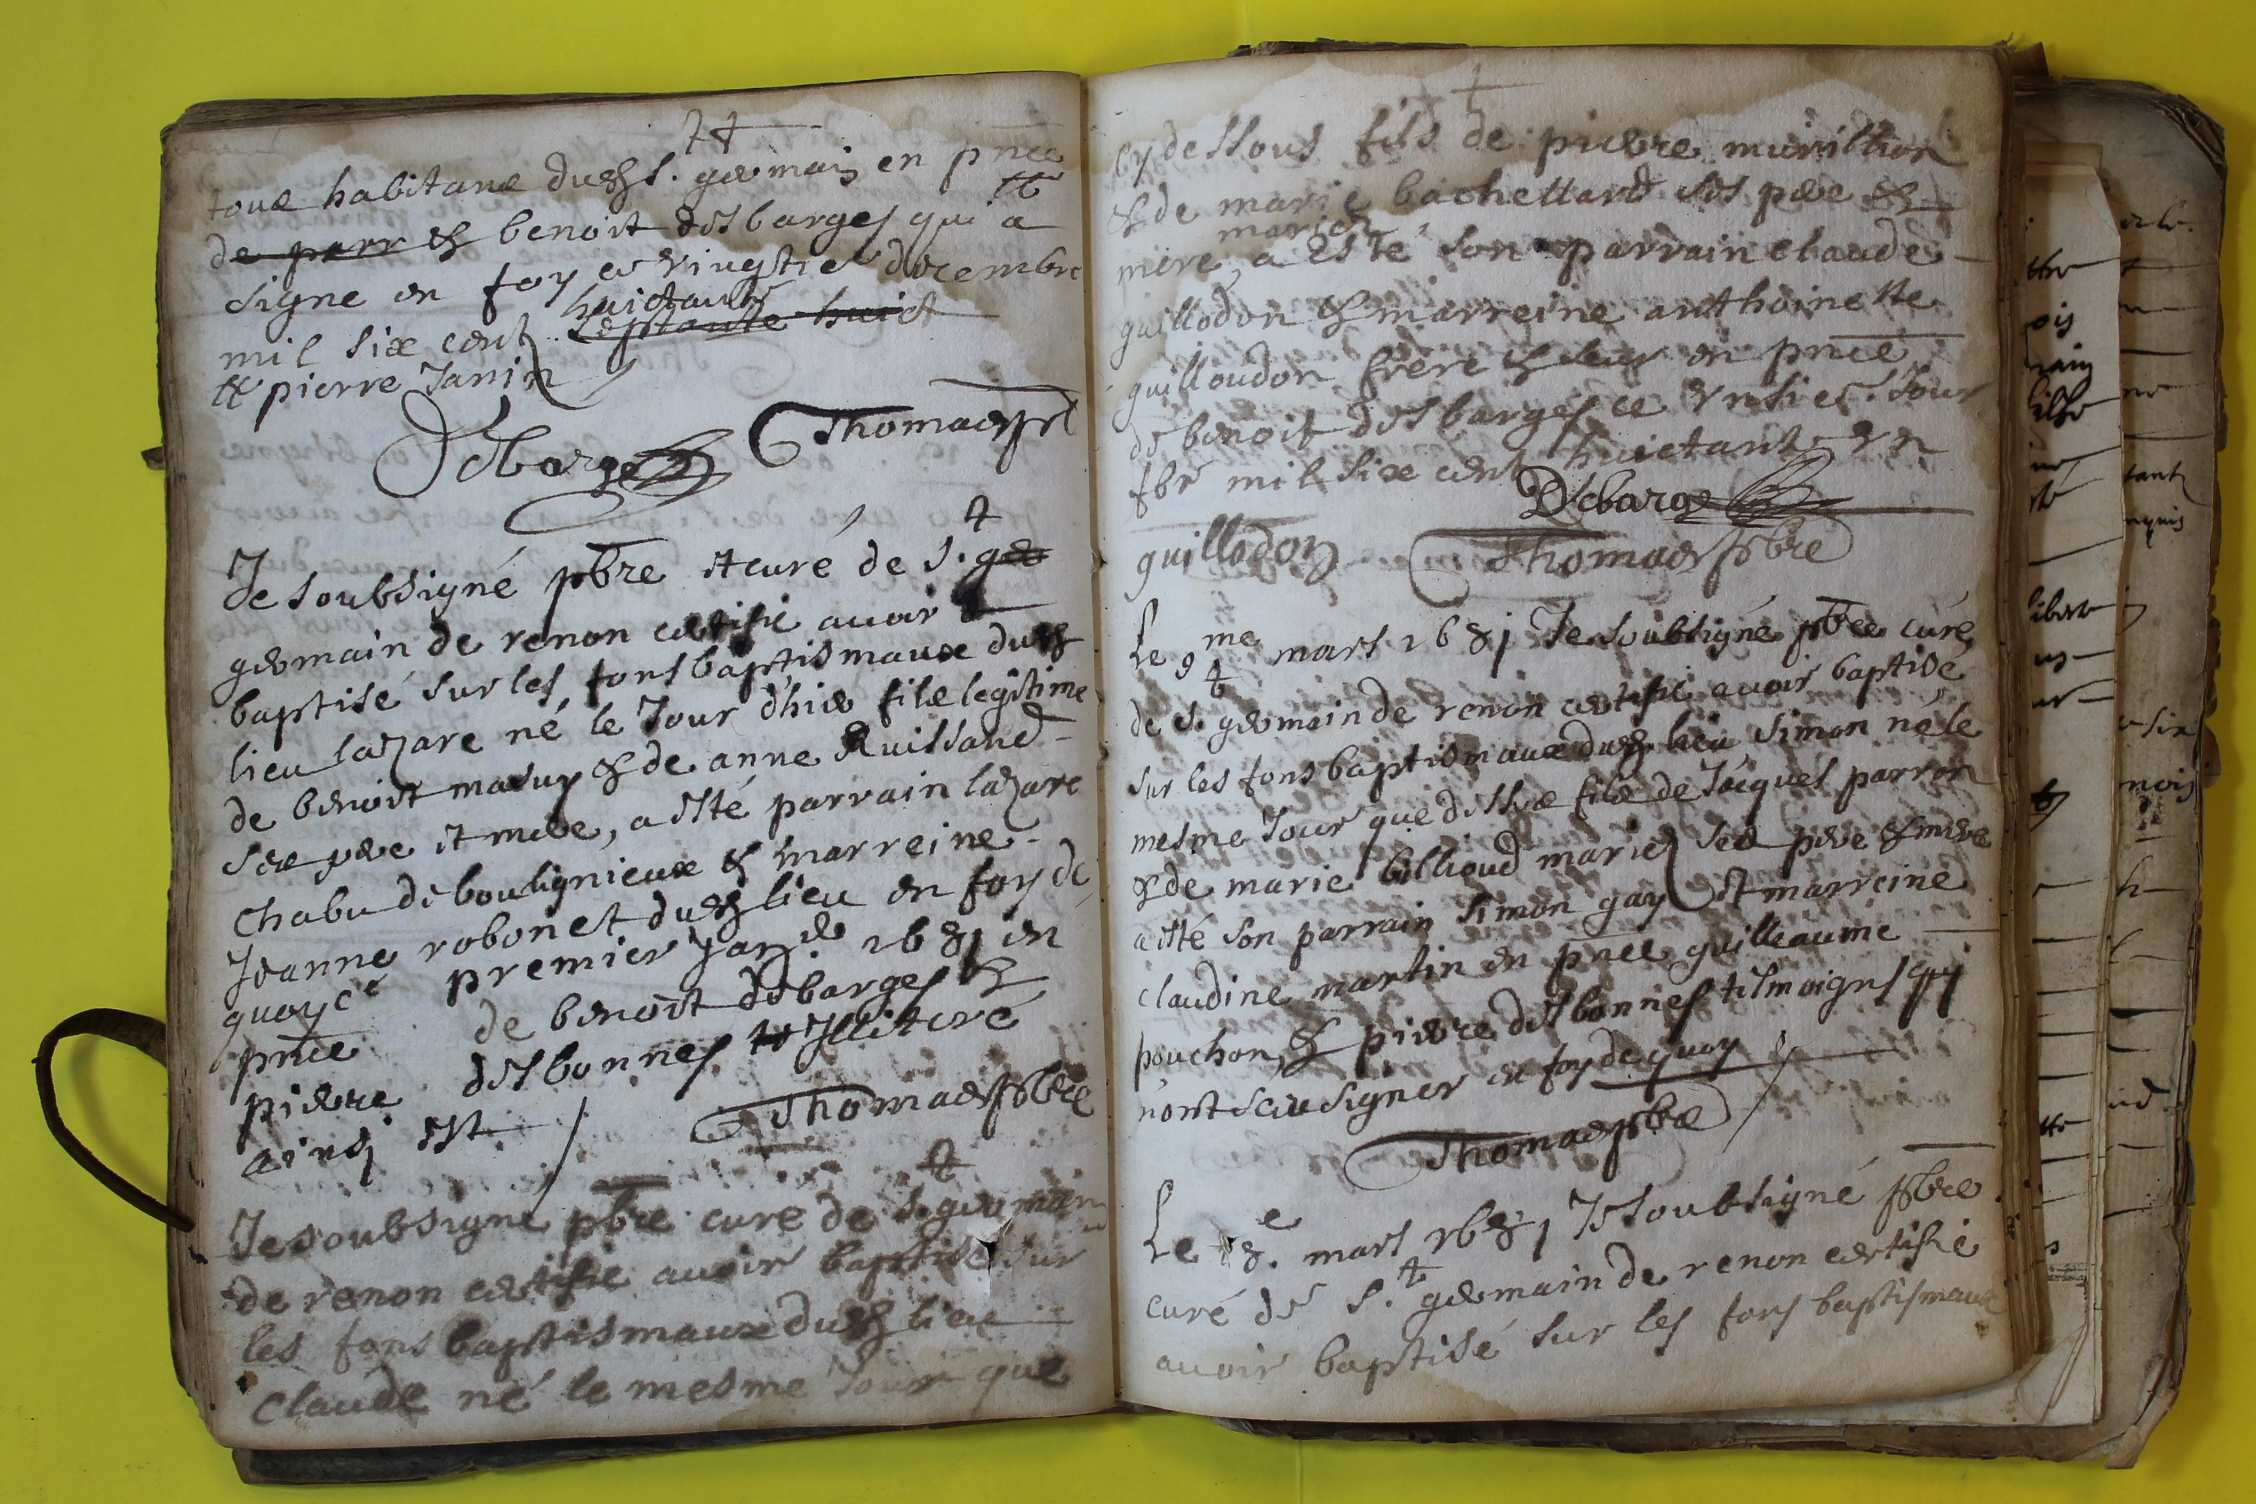 tous habitans dudt s.t germain en pnce
de parr & benoit desbarges qui a
signé en foy ce vingtie decembre
mil six cent huictante septante huict
pierre Janin
Debarge Thomas pbr
Je soubsigné pbre et curé de s.t ger
germain de renon certifie avoir
baptisé sur les fons baptismaux dudt
lieu lazare né le Jour d'hier filz legitime
de benoit masuy & de anne Ruissand
ses pere et mere, a esté parrain lazare
Chabu de boulignieux & marreine
Jeanne robonet dudt lieu en foy de
quoy ce premier Janer 1681 en
pnce de benoit desbarges &
pierre desbonnes Illiteré
ainsj est Thomas pbre
Je soubsigné pbre curé de s.t germain
de renon certifie avoir baptisé sur
les fons baptismaux dudt lieu
Claude né le mesme Jour que
cy dessous fils de pierre murillion
& de marie bachellard ses pere &
mere mariez, a esté son parrain claude
guillodon & marreine anthoinette
guilloudon frere & seur en pnce
de benoit desbarges ce unsie. Jour
fbr mil six cent huictante un
Debarge
guillodon Thomas pbre
Le 9me mars 1681 Je soubsigné pbre curé
de s.t germain de renon certifie avoir baptisé
sur les fons baptismaux dudt lieu simon né le
mesme Jour que dessus filz de Jacques parron
& de marie billioud mariez ses pere & mere
a esté son parrain simon gay et marreine
claudine martin en pnce guilleaume
pouchon & pierre desbonnes tesmoigns qui
n'ont sceu signer en foy de quoy
Thomas pbre
Le 8e. mars 1681 Je soubsigné pbre
curé de s.t germain de renon certifie
avoir baptisé sur les fons baptismaux